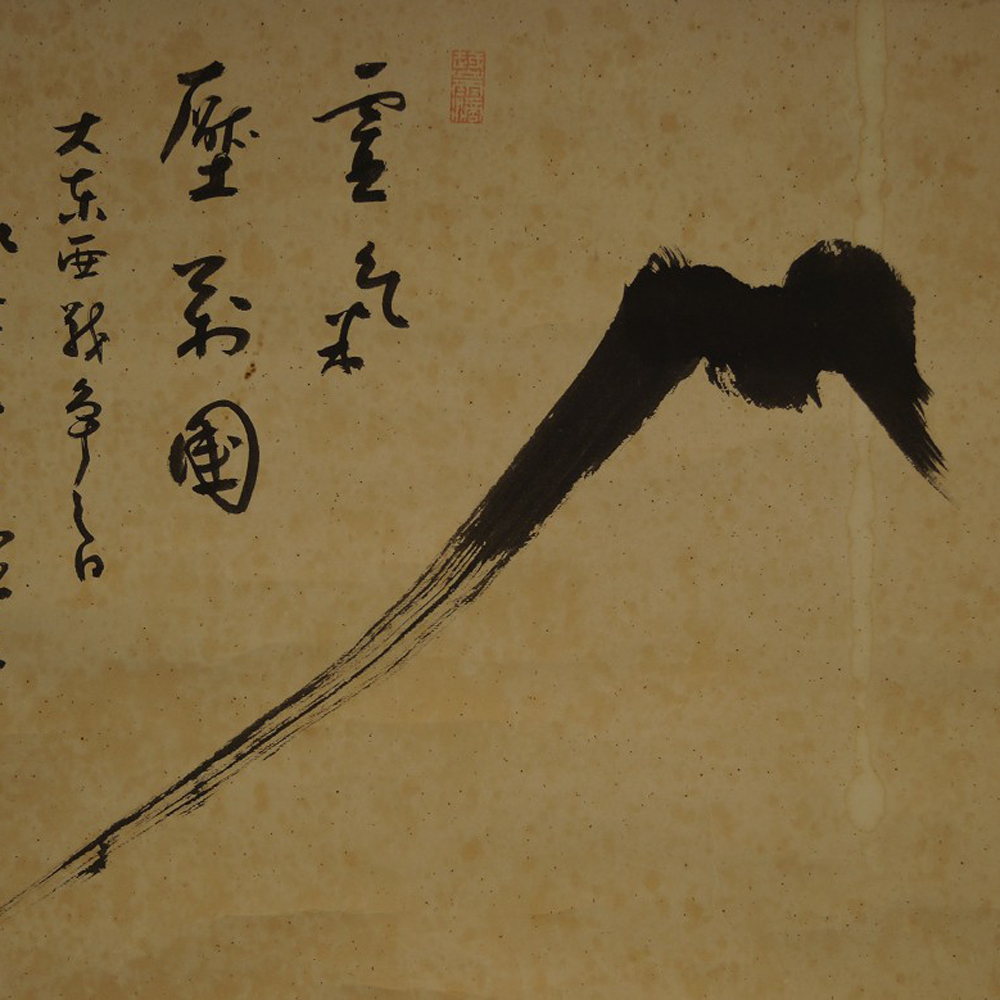 霊氣
壓萬國
大東亜戦争之日